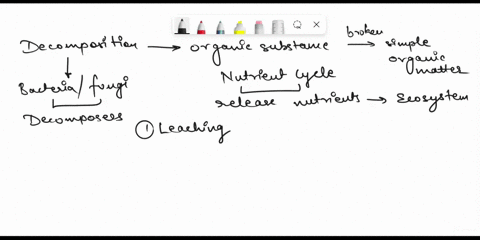 broken
Decomposition → organic substance → simple organic matter
Bacteria/fungi
Nutrient cycle
Decomposers
release nutrients → Ecosystem
① Leaching